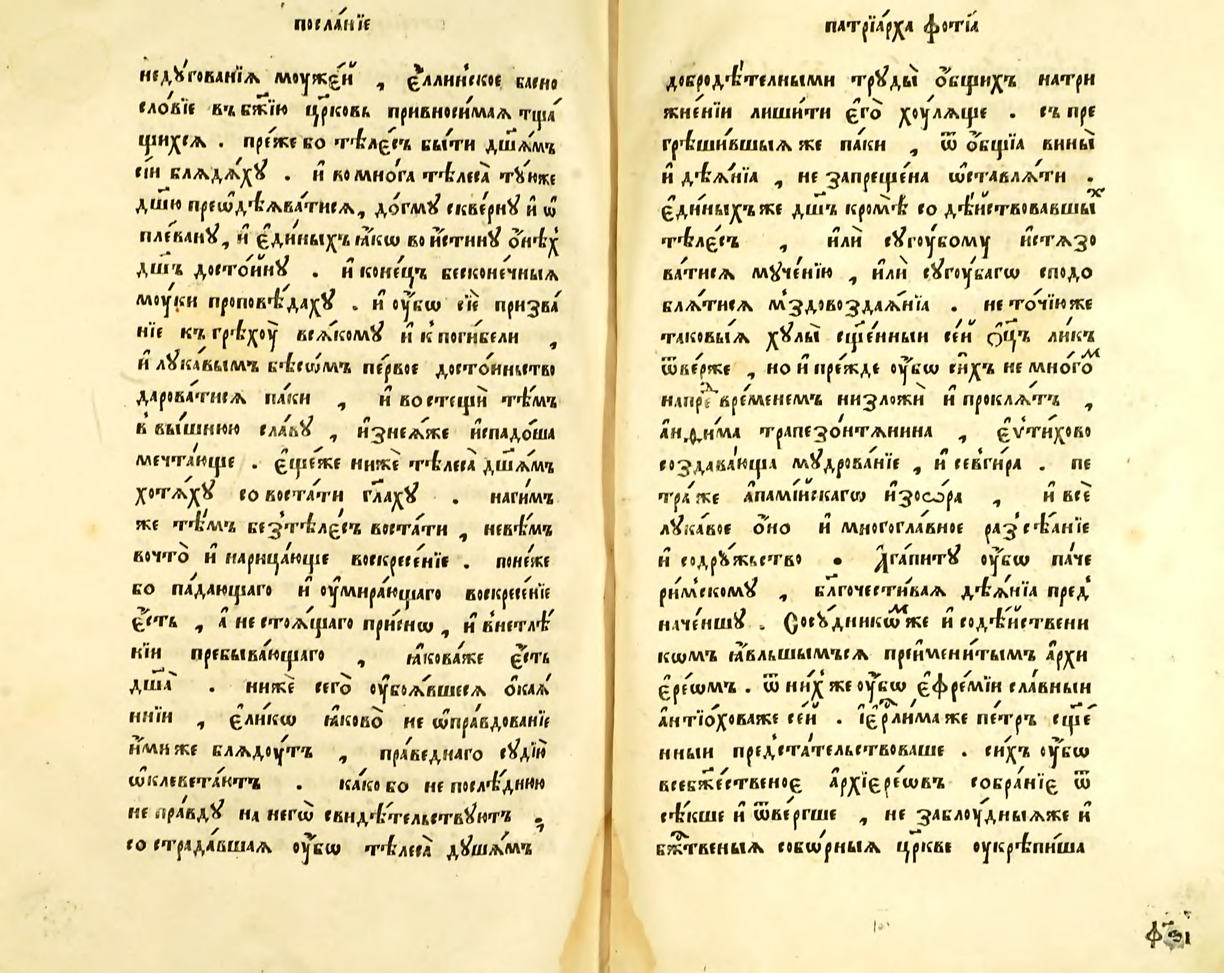 посла́нїе
недꙋгованїѧ моуже́й , є҆́ллиⷩ҇ское басно
сло́вїе въ бж҃їю цр҃ковь привносимаѧ тща́
щихсѧ . пре́же бо тѣле́съ бы́ти дш҃ѧ́мъ
сїи блѧдѧ́хꙋ . и҆ во мнѡ́га тѣлеса̀ тꙋ́юже
дш҃ю преѡ҆дѣѧва́тисѧ, до́гмꙋ скве́рнꙋ и҆ ѡ҆
пле́ванꙋ, и҆ є҆ди́ныхъ ꙗ҆́кѡ во и҆́стинꙋ о҆́нѣх
дш҃ъ досто́йнꙋ . и҆ коне́цъ бесконе́чныѧ
моу́ки проповѣ́дахꙋ . и҆ оу҆́бѡ сїѐ призва́
нїе къ грѣхоу̀ всѧ́комꙋ и҆ к поги́бели ,
и҆ лꙋка́вымъ бѣсѡ́мъ пе́рвое досто́инъство
дарова́тисѧ па́ки , и҆ во стещѝ тѣ́мъ
в вы́шнюю сла́вꙋ , и҆знеѧ́же и҆спадо́ша
мечта́юще . є҆ще́же нижѐ тѣлеса̀ дш҃ѧ́мъ
хотѧ́хꙋ со воста́ти гл҃ахꙋ . наги́мъ
же тѣ́мъ без̾тѣле́съ воста́ти , невѣ́мъ
вочто̀ и҆ нарица́юще воскресе́нїе . поне́же
бо па́дающаго и҆ оу҆мира́ющаго воскресе́нїе
є҆́сть , а҆ не стоѧ́щаго при́снѡ , и҆ в нетлѣ́
нїи пребыва́ющаго , ꙗ҆кова́же є҆́сть
дш҃а̀ . нижѐ сего̀ оу҆боѧ́вшесѧ о҆каѧ́
ннїи , є҆ли́кѡ ꙗ҆ково̀ не ѡ҆правдованїе
и҆́миже блѧдоу́тъ , пра́веднаго сꙋдїю̀
ѡ҆клевета́ютъ . ка́ко бо не послѣ́днюю
не пра́вдꙋ на него̀ свидѣ́тельствꙋютъ ,
со страда́вшаѧ оу҆́бѡ тѣлеса̀ дꙋшѧ́мъ
патрїа́рха фо́тїа
добродѣ́телными трꙋды̀ о҆́бщихъ натри
жне́нїи лиши́ти є҆го̀ хоу́лѧще . съ пре
грѣши́вшыѧ же па́ки , ѿ о҆́бщїа вины̀
и҆ дѣѧ́нїа , не запреще́на ѡ҆ставлѧ́ти .
є҆ди́ныхъ же дш҃ъ кромѣ̀ со дѣ́йствовавшыⷯ
тѣле́съ , и҆лѝ сꙋгоу́бомꙋ и҆стѧзо
ва́тисѧ мꙋче́нїю , и҆лѝ сꙋгоу́багѡ сподо
блѧ́тисѧ мздовоздаѧ́нїа . не то́чїюже
таковы́ѧ хꙋлы̀ сщ҃е́нныи се́й ѻ҆ц҃ъ ли́къ
ѿве́рже , но и҆ пре́жде оу҆́бѡ си́хъ не мно́гоⷨ
напреⷣ вре́менемъ низложѝ и҆ проклѧ́тъ ,
а҆нѳи́ма трапезо́нтѧнина , є҆ѵти́хово
создава́юща мꙋдрова́нїе , и҆ севги́ра . пе
тра́ же а҆памі́йскагѡ и҆зоѡ́ра , и҆ всѐ
лꙋка́вое о҆́но и҆ многогла́вное раз̾сѣѧ́нїе
и҆ содрꙋ́жьство . А҆гапи́тꙋ оу҆́бѡ па́че
ри́мскомꙋ , бл҃гочести́ваѧ дѣѧ́нїа пред̾
наче́ншꙋ . Сосꙋ́дникѡⷨ же и҆ содѣ́йствени
кѡмъ ꙗ҆́вльшымъсѧ преи҆мени́тымъ а҆рхи
є҆ре́ѡмъ . ѿ ни́х же оу҆́бѡ є҆фре́мїи сла́вныи
а҆нтїо́ховаже се́й . і҆ерⷭ҇ли́ма же пе́тръ сщ҃е́
нныи предста́тельствоваше . си́хъ оу҆́бѡ
всебж҃е́ственое а҆рхїере́ѡвъ собра́нїе ѿ
сѣ́кше и҆ ѿве́ргше , не заблоу́дныѧже и҆
бж҃твеныѧ собѡ́рныѧ цр҃кве оукрѣпи́ша